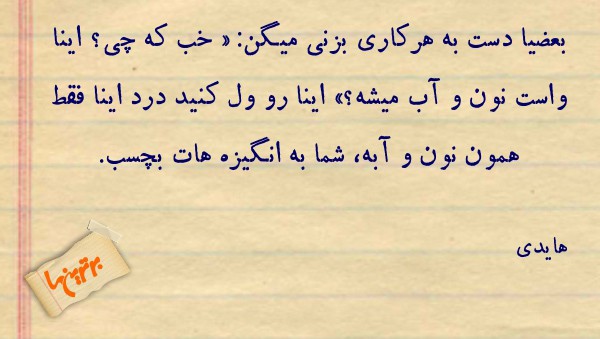 بعضیا دست به هرکاری بزنی میگن: « خب که چی؟ اینا
واست نون و آب میشه؟» اینا رو ول کنید درد اینا فقط
همون نون و آبه، شما به انگیزه هات بچسب.
هایدی
برترین ها